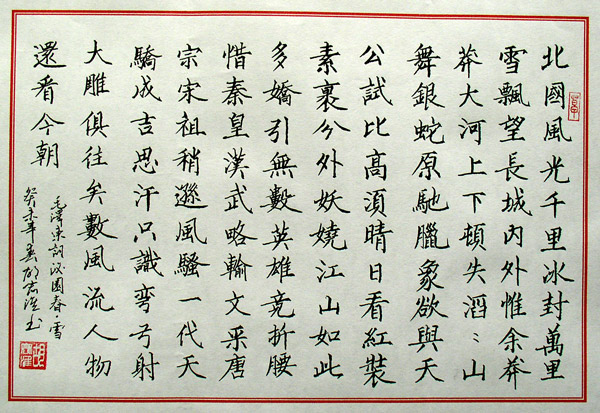 北國風光千里冰封萬里
雪飄望長城內外惟余莽
莽大河上下頓失滔〻山
舞銀蛇原馳臘象欲與天
公試比高須晴日看紅裝
素裹分外妖嬈江山如此
多嬌引無數英雄竞折腰
惜秦皇漢武略輸文采唐
宗宋祖稍遜風騷一代天
驕成吉思汗只識彎弓射
大雕俱往矣數風流人物
還看今朝
毛澤東詞沁園春·雪
癸未年 书